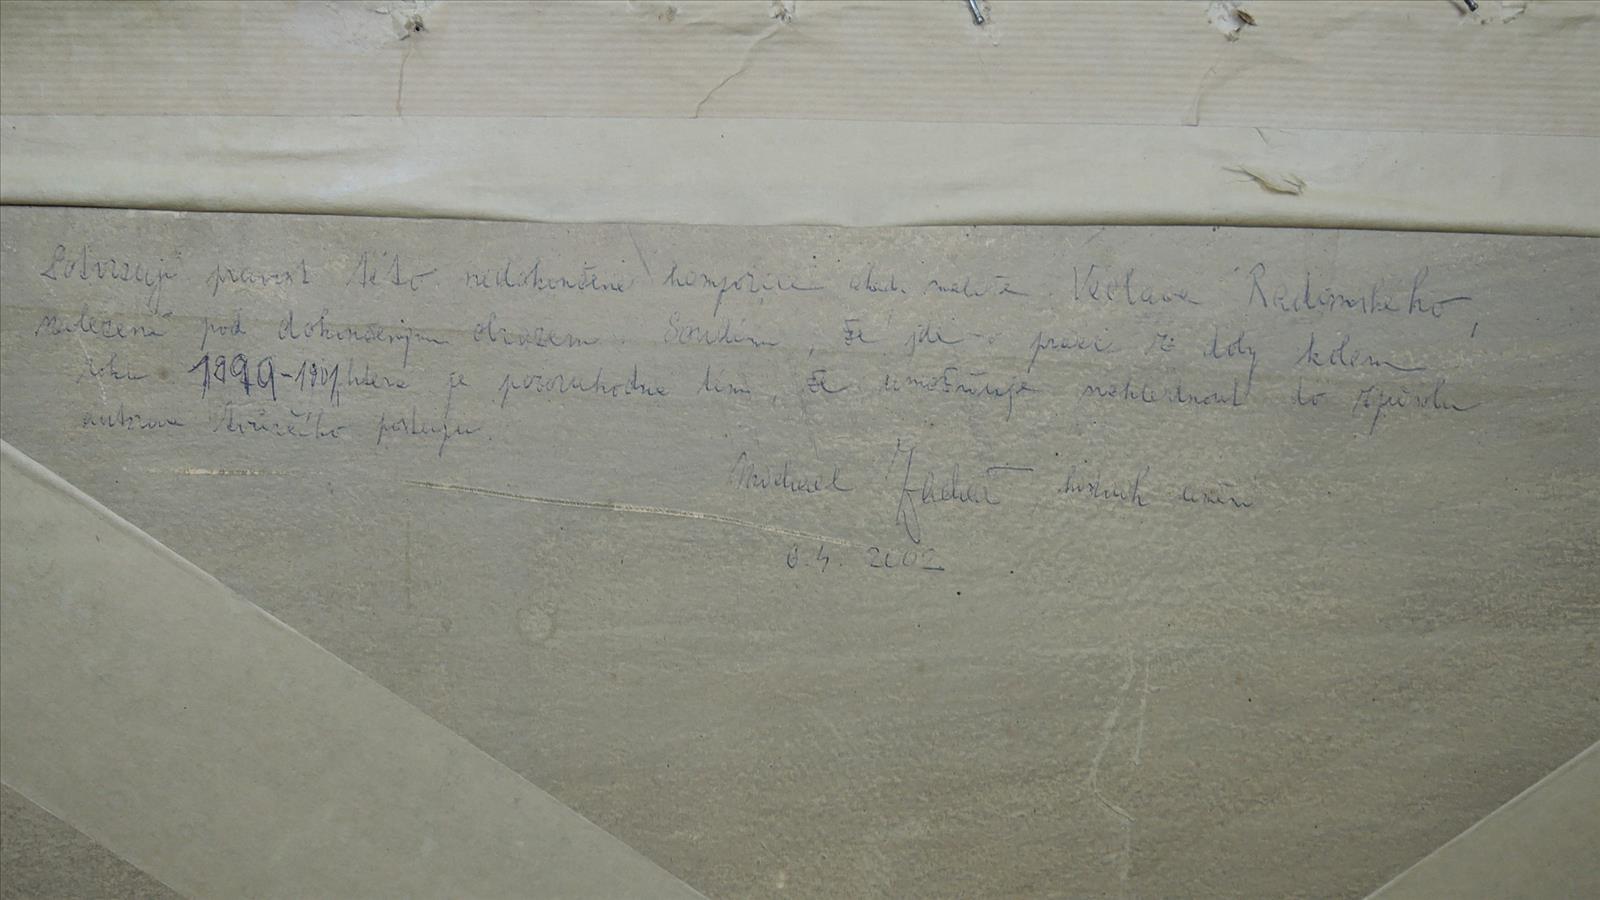 Potvrzuji pravost této nedokončené kompozice akad. malíře Václava Radimského,
nalezené pod dokončeným obrazem. Soudím, že jde o práci z doby kolem
roku 1899-1901, která je pozoruhodná tím, že umožňuje nahlédnout do způsobu
autorova tvůrčího postupu.
Michael Zachař, historik umění
6.4. 2002